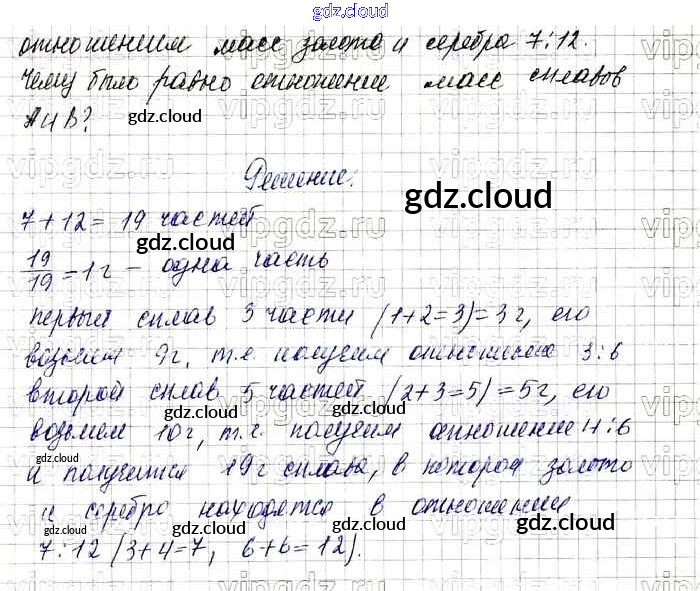 gdz.cloud
отношением масс золота и серебра 7:12.
Чему было равно отношение масс сплавов
А и В?
gdz.cloud
Решение:
gdz.cloud
7+12= 19 частей
gdz.cloud
19/19 = 1 г - одна часть
первый сплав 3 части (1+2=3)=3г, его
возьмем 9г, т.е. получим отношение 3:6
gdz.cloud
второй сплав 5 частей (2+3=5)=5г, его
gdz.cloud gdz.cloud
возьмем 10г, т.е. получим отношение 4:6
gdz.cloud
и получится 19г сплава, в котором золото
и серебро находятся в отношении
gdz.cloud gdz.cloud gdz.cloud
7:12 (3+4=7, 6+6=12).